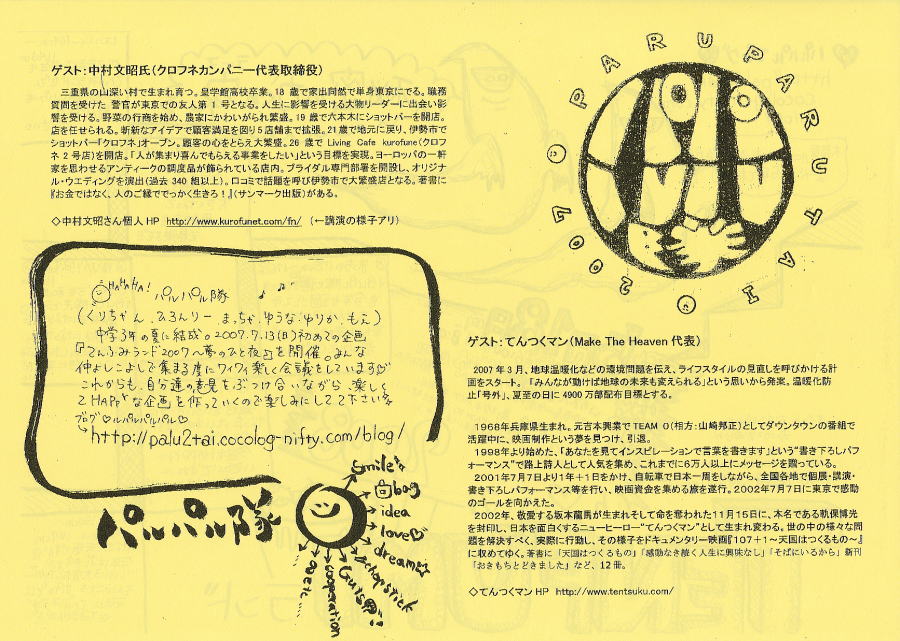 ゲスト：中村文昭氏（クロフネカンパニー代表取締役）
三重県の山深い村で生まれ育つ。皇学館高校卒業。18 歳で家出同然で単身東京にでる。職務
質問を受けた 警官が東京での友人第 1 号となる。人生に影響を受ける大物リーダーに出会い影
響を受ける。野菜の行商を始め、農家にかわいがられ繁盛。19 歳で六本木にショットバーを開店。
店を任せられる。斬新なアイデアで顧客満足を図り5店舗まで拡張。21歳で地元に戻り、伊勢市で
ショットバー「クロフネ」オープン。顧客の心をとらえ大繁盛。26 歳で Living Cafe kurofune(クロフ
ネ 2 号店)を開店。「人が集まり喜んでもらえる事業をしたい」という目標を実現。ヨーロッパの一軒
家を思わせるアンティークの調度品が飾られている店内。ブライダル専門部署を開設し、オリジナ
ル・ウエディングを演出(過去 340 組以上)。口コミで話題を呼び伊勢市で大繁盛店となる。著書に
『お金ではなく、人のご縁ででっかく生きろ！』(サンマーク出版)がある。
◇中村文昭さん個人 HP http://www.kurofunet.com/fn/ （←講演の様子アリ）
HAHAHA!
パルパル隊
(くりちゃん、ひろんりー、まっちゃ、ゆうな、ゆりか、もえ)
中学3年の夏に結成。2007.7.13(日)初めての企画
『てんふみランド2007～夢のひと夜』を開催。みんな
仲よしこよしで集まる度にワイワイ楽しく会議をしていますが
これからも、自分達の意見をぶつけ合いながら、楽しく
てHAPPYな企画を作っていくので楽しみにしてて下さい
ブログ♡ルパルパルパル♡
↪http://palu2tai.cocolog-nifty.com/blog/
パルパル隊
smile
白bag
idea
love♡
dream☆
chopstick
Guts
cooperation
etc...
PARUPARUTAI 2007
ゲスト：てんつくマン（Make The Heaven 代表）
2007 年 3 月、地球温暖化などの環境問題を伝え、ライフスタイルの見直しを呼びかける計
画をスタート。「みんなが動けば地球の未来も変えられる」という思いから発案。温暖化防
止「号外」、夏至の日に 4900 万部配布目標とする。
1968年兵庫県生まれ。元吉本興業で TEAM 0（相方：山崎邦正）としてダウンタウンの番組で
活躍中に、映画制作という夢を見つけ、引退。
1998年より始めた、「あなたを見てインスピレーションで言葉を書きます」という“書き下ろしパフ
ォーマンス”で路上詩人として人気を集め、これまでに6万人以上にメッセージを贈っている。
2001年7月7日より1年＋1日をかけ、自転車で日本一周をしながら、全国各地で個展・講演・
書き下ろしパフォーマンス等を行い、映画資金を集める旅を遂行。2002年7月7日に東京で感動
のゴールを向かえた。
2002年、敬愛する坂本龍馬が生まれそして命を奪われた11月15日に、本名である軌保博光
を封印し、日本を面白くするニューヒーロー“てんつくマン”として生まれ変わる。世の中の様々な問
題を解決すべく、実際に行動し、その様子をドキュメンタリー映画『107＋1～天国はつくるもの～』
に収めてゆく。著書に「天国はつくるもの」「感動なき続く人生に興味なし」「そばにいるから」新刊
「おきもちとどきました」など、12冊。
◇てんつくマン HP http://www.tentsuku.com/